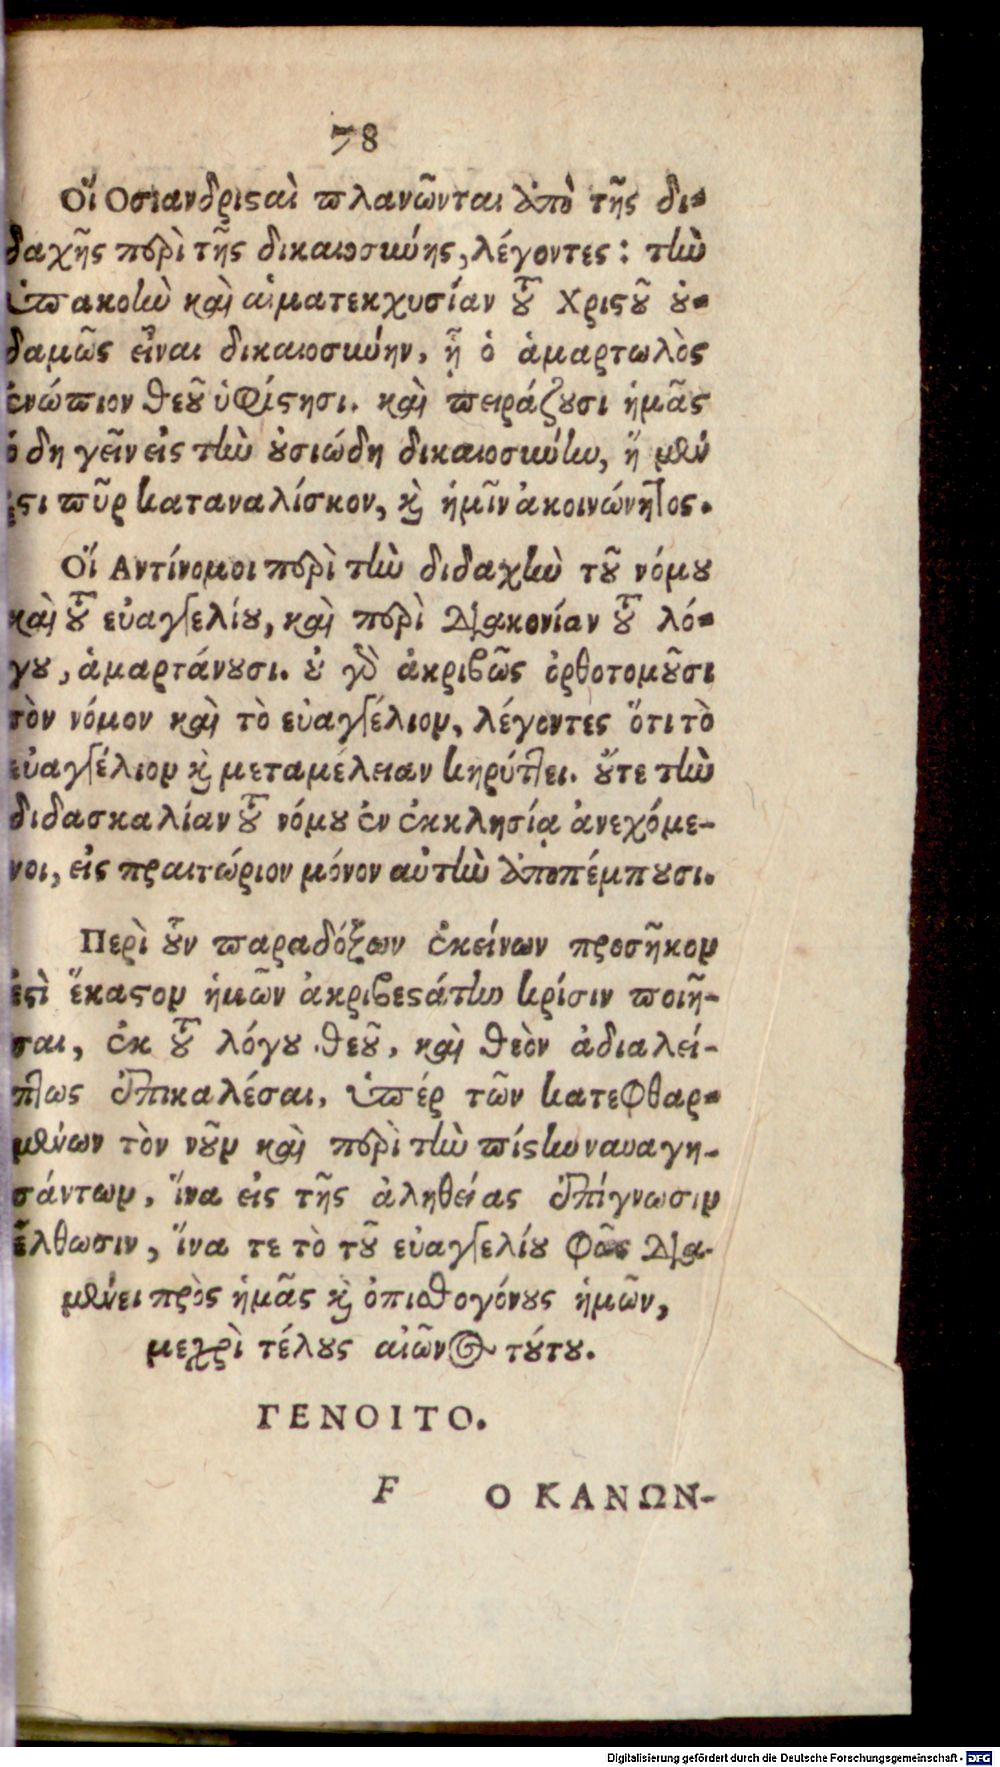 78
Οἵ Οσιανδρισαὶ πλανῶνται ἀπὸ τῆς δι-
δαχῆς περὶ τῆς δικαιοσύνης, λέγοντες: τὴν
ὑπακοὴν καὶ αἱματεκχυσίαν τοῦ Χριστοῦ οὐ-
δαμῶς εἶναι δικαιοσύνην, ᾗ ὁ ἁμαρτωλὸς
ἐνώπιον θεοῦ ὑφίστησι. καὶ πειράζουσι ἡμᾶς
ὁδηγεῖν εἰς τὴν οὐσιώδη δικαιοσύνην, ἥ μὲν
ἐστι πῦρ καταναλίσκον, καὶ ἡμῖν ἀκοινώνητος.
Οἵ Αντίνομοι περὶ τὴν διδαχὴν τοῦ νόμου
καὶ τοῦ εὐαγγελίου, καὶ περὶ διακονίαν τοῦ λό-
γου, ἁμαρτάνουσι. οὐ γὰρ ἀκριβῶς ὀρθοτομοῦσι
τὸν νόμον καὶ τὸ εὐαγγέλιον, λέγοντες ὅτι τὸ
εὐαγγέλιον καὶ μεταμέλειαν κηρύττει. οὔτε τὴν
διδασκαλίαν τοῦ νόμου ἐν ἐκκλησίᾳ ἀνεχόμε-
νοι, εἰς πραιτώριον μόνον αὐτὴν ἀποπέμπουσι.
Περὶ οὖν παραδόξων ἐκείνων προσῆκον
ἐστὶ ἕκαστον ἡμῶν ἀκριβεστάτην κρίσιν ποιῆ-
σαι, ἐκ τοῦ λόγου θεοῦ, καὶ θεὸν ἀδιαλεί-
πτως ἐπικαλέσαι, ὑπέρ τῶν κατεφθαρ-
μένων τὸν νοῦν καὶ περὶ τὴν πίστιν ναυαγη-
σάντων, ἵνα εἰς τῆς ἀληθείας ἐπίγνωσιν
ἔλθωσιν, ἵνα τε τὸ τοῦ εὐαγγελίου φῶς δια-
μένει πρὸς ἡμᾶς καὶ ὀπισθογόνους ἡμῶν,
μεχρὶ τέλους αἰῶνος τούτου.
ΓΕΝΟΙΤΟ.
F Ο ΚΑΝΩΝ-
Digitalisierung gefördert durch die Deutsche Forschungsgemeinschaft - DFG